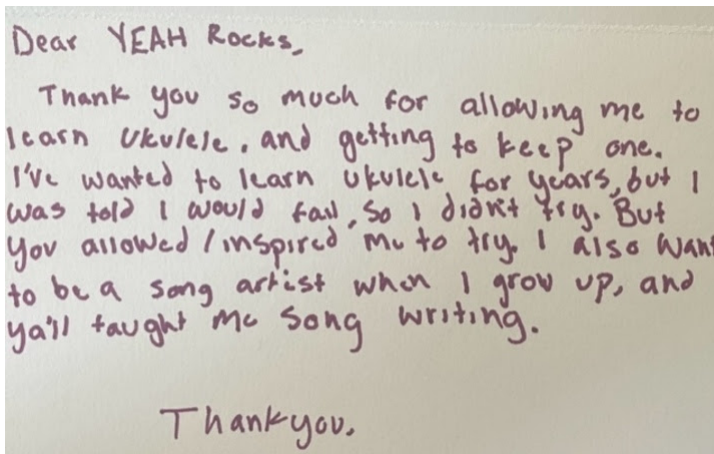 Dear YEAH Rocks,
Thank you so much for allowing me to
learn Ukulele, and getting to keep one.
I've wanted to learn Ukulele for years, but I
was told I would fail, so I didn't try. But
you allowed/inspired me to try. I also want
to be a song artist when I grow up, and
ya'll taught me song writing.
Thankyou.